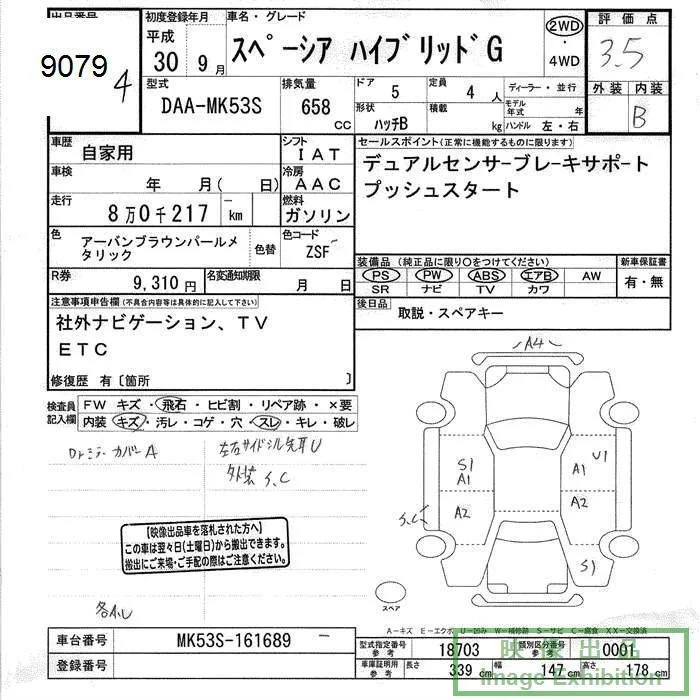 出品番号
9079
4
初度登録年月
平成
30 9月
車名・グレード
スペーシア ハイブリッドG
2WD
・
4WD
評価点
3.5
外装 内装
B
型式
DAA-MK53S
排気量
658
CC
ドア
5
定員
4 人
形状
ハッチB
積載
kg
ディーラー・並行
モデル年式 年
ハンドル 左・右
車歴
自家用
シフト
IAT
車検
年 月( 日)
冷房
AAC
走行
8万0千217 km
燃料
ガソリン
色
アーバンブラウンパールメ
タリック
色替
色コード
ZSF
R券
9,310円
名変通知期限
月 日
セールスポイント(正常に機能するものに限り)
デュアルセンサーブレーキサポート
プッシュスタート
装備品(純正品に限り〇をつけてください)
PS PW ABS エアB AW
SR ナビ TV カワ
新車保証書
有・無
後日品
取説・スペアキー
注意事項申告欄(不具合内容等は具体的に記入して下さい)
社外ナビゲーション、TV
ETC
修復歴 有〔箇所 〕
検査員
記入欄
FW キズ・飛石・ヒビ割・リペア跡・×要
内装 キズ・汚レ・コゲ・穴・スレ・キレ・破レ
Drミラーカバー A
左右サイドシル先耳U
外装 S.C
各AU
【映像出品車を落札された方へ】
この車は翌々日(土曜日)から搬出できます。
搬出にご来場・ご手配の際はご注意ください。
A4
S1
A1
A2
S.C
U1
A1
A2
S1
スペア
A-キズ E-エクボ U-凹み W-補修跡 S-サビ C-腐食 XX-交換済
車台番号
MK53S-161689
登録番号
型式指定番号
参考
18703
類別区分番号
参考
0001
車庫証明用
参考
長さ 339 cm 幅 147 cm 高さ 178 cm
映像出品
Image Exhibition